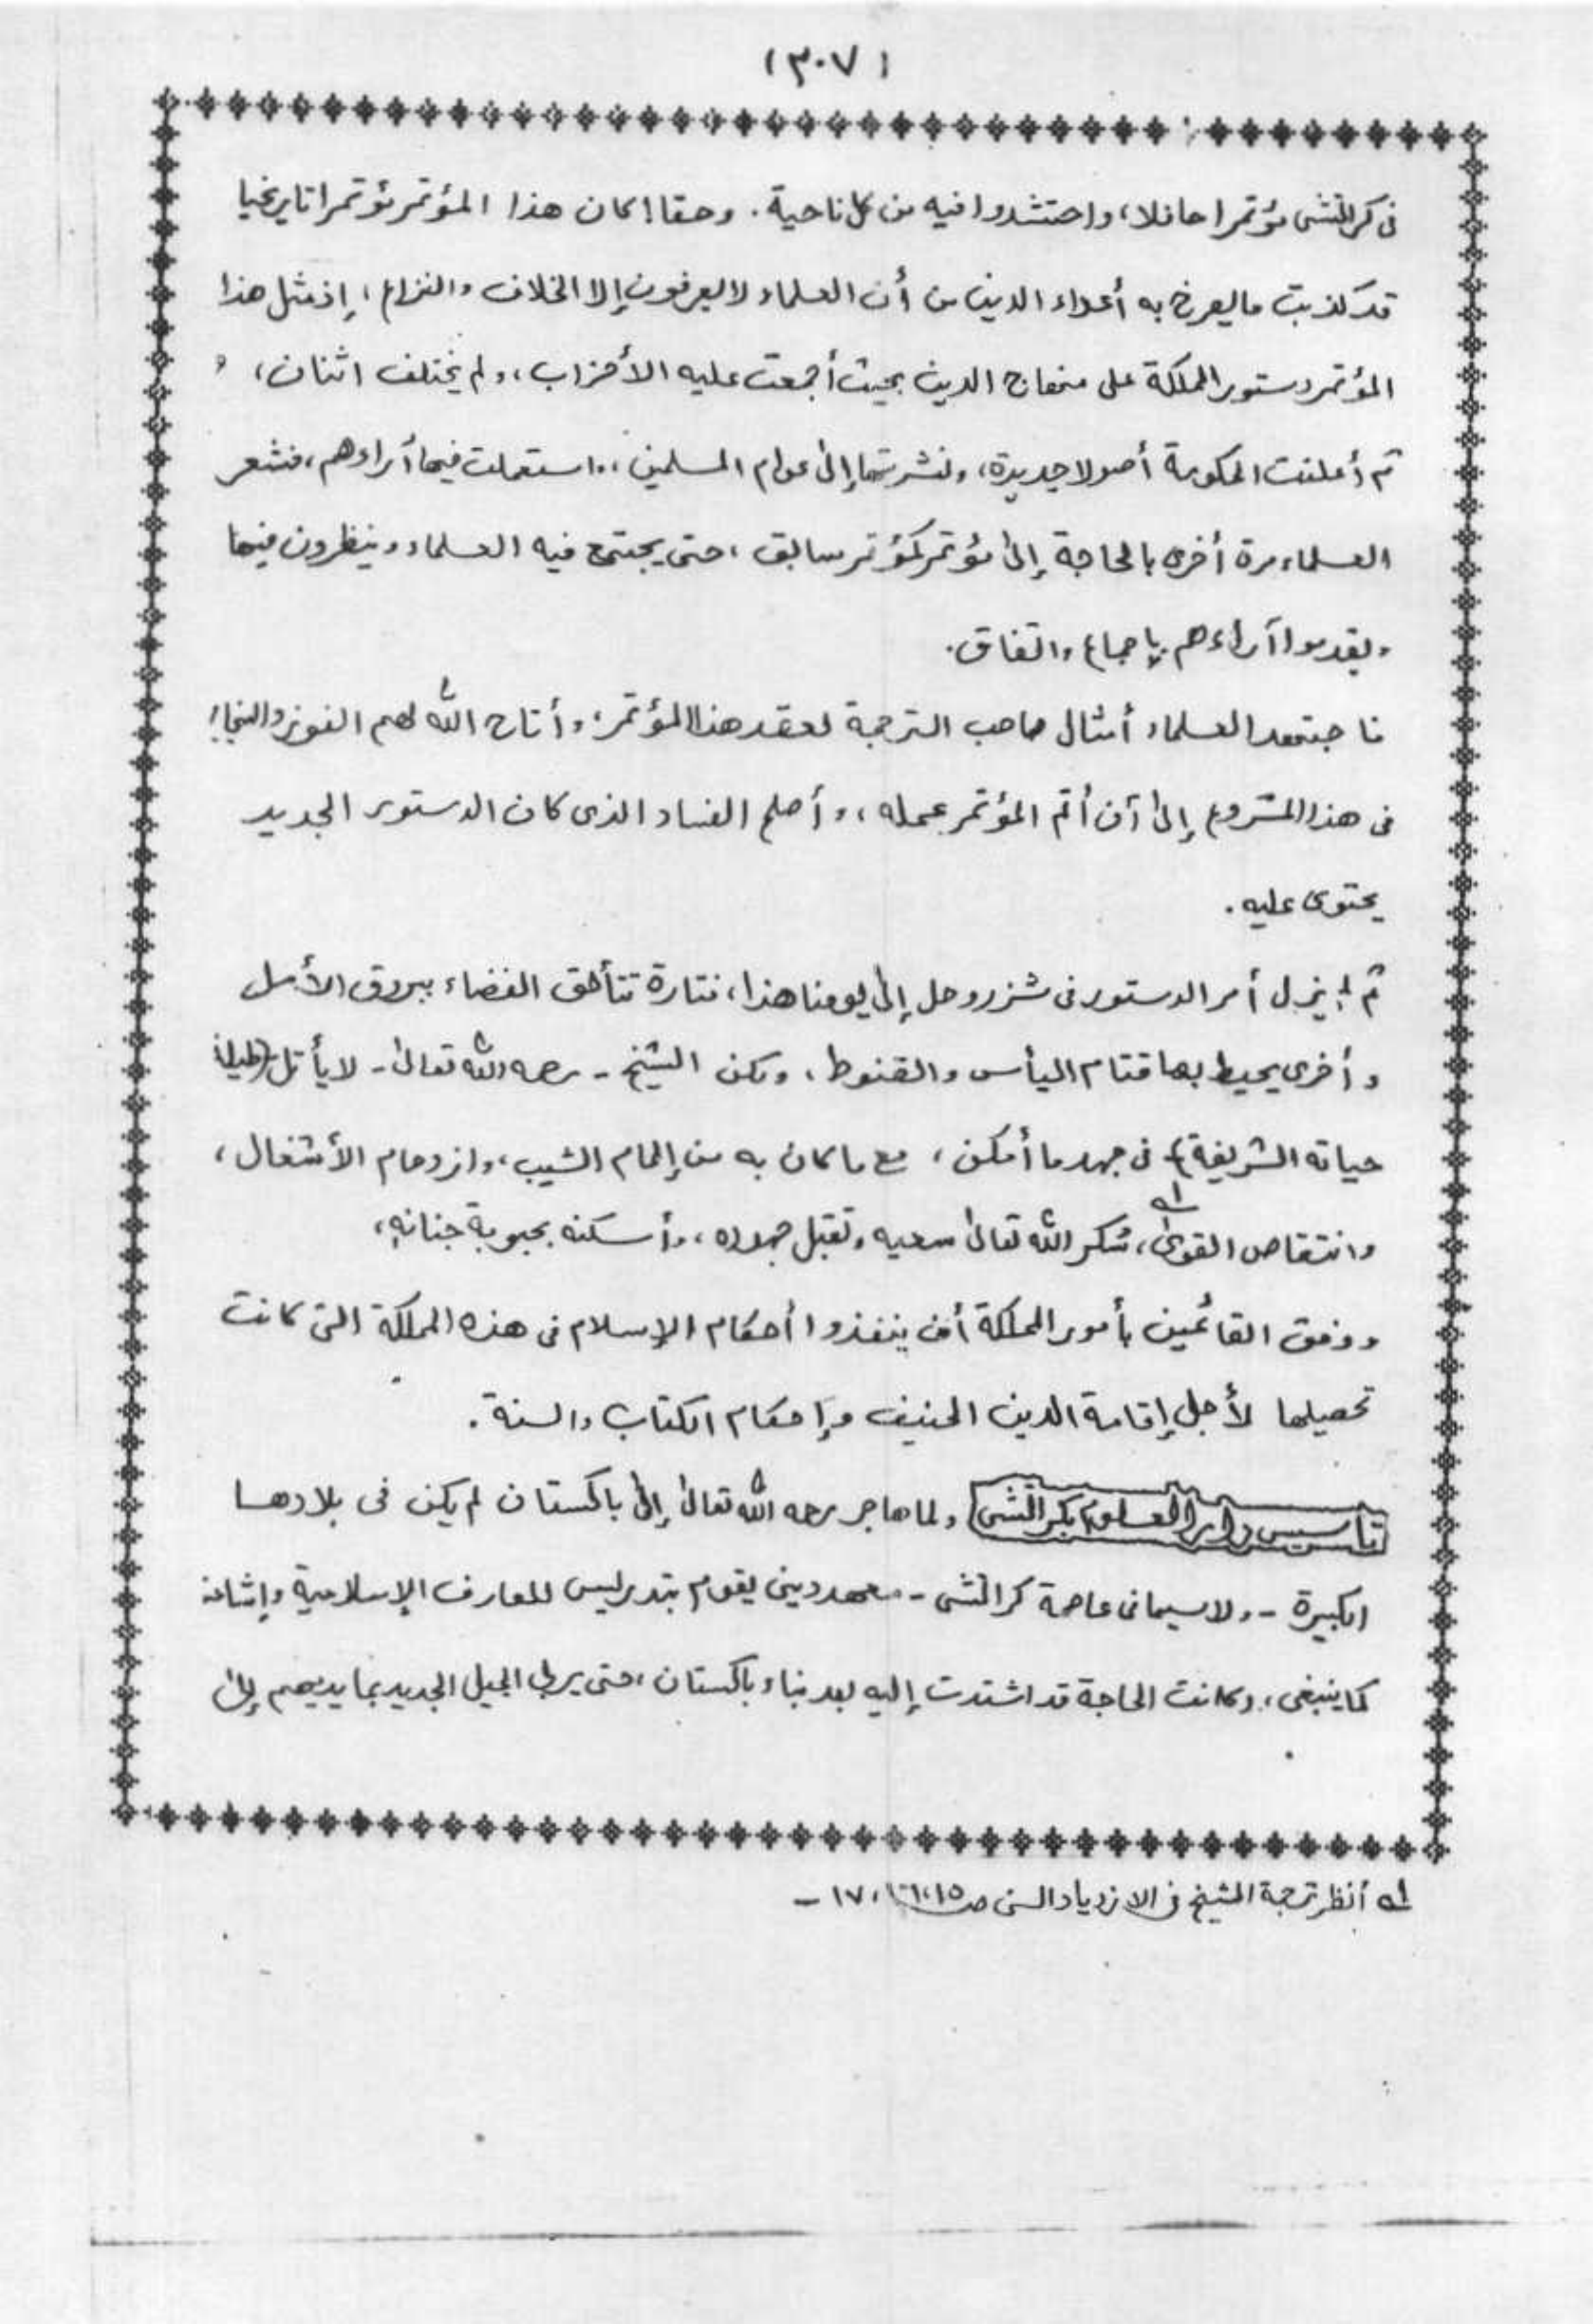 (٣٠٧)
فى كراتشى مؤتمرا حافلا، واحتشدوا فيه من كل ناحية. وحقا! كان هذا المؤتمر مؤتمرا تاريخيا
قد كذبت ما يصرخ به أعداء الدين من أن العلماء لا يعرفون إلا الخلاف والنزاع، إذ مثل هذا
المؤتمر دستور المملكة على منهاج الدين بحيث أجمعت عليه الأحزاب، ولم يختلف اثنان، و
ثم أعلنت الحكومة أصولا جديدة، ونشرتها إلى عوام المسلمين، واستعملت فيها آراءهم، فشعر
العلماء مرة أخرى بالحاجة إلى مؤتمر كمؤتمر سابق، حتى يجتمع فيه العلماء وينظرون فيها
ويقدموا آراءهم بإجماع واتفاق.
فاجتهد العلماء أمثال صاحب الترجمة لعقد هذا المؤتمر، وأتاح الله لهم الفوز والنجاح
فى هذا المشروع إلى آن أتم المؤتمر عمله، وأصلح الفساد الذى كان الدستور الجديد
يحتوى عليه.
ثم لم يزل أمر الدستور فى شزر وحل إلى يومنا هذا، فتارة تتألق الفضاء ببروق الأمل
وأخرى يحيط بها قتام اليأس والقنوط، ولكن الشيخ - رحمه الله تعالى - لا يأتل (طيلة
حياته الشريفة) فى جهد ما أمكن، مع ما كان به من إلمام الشيب، وازدحام الأشغال،
وانتقاص القوى، شكر الله تعالى سعيه وتقبل جهوده، وأسكنه بحبوبة جنانه،
ووفق القائمين بأمور المملكة أن ينفذوا أحكام الإسلام فى هذه المملكة التى كانت
تحصيلها لأجل إقامة الدين الحنيف وإحكام الكتاب والسنة.
تأسيس دار العلوم بكراتشى ولما هاجر رحمه الله تعالى إلى باكستان لم يكن فى بلادها
الكبيرة - ولا سيما فى عاصمة كراتشى - معهد دينى يقوم بتدريس للمعارف الإسلامية وإشاعته
كما ينبغى، وكانت الحاجة قد اشتدت إليه بعد بناء باكستان، حتى يربى الجيل الجديد بما يديهم إلى
له أنظر ترجمة الشيخ فى الازدياد السنى ص ١٥، ١٦، ١٧ -